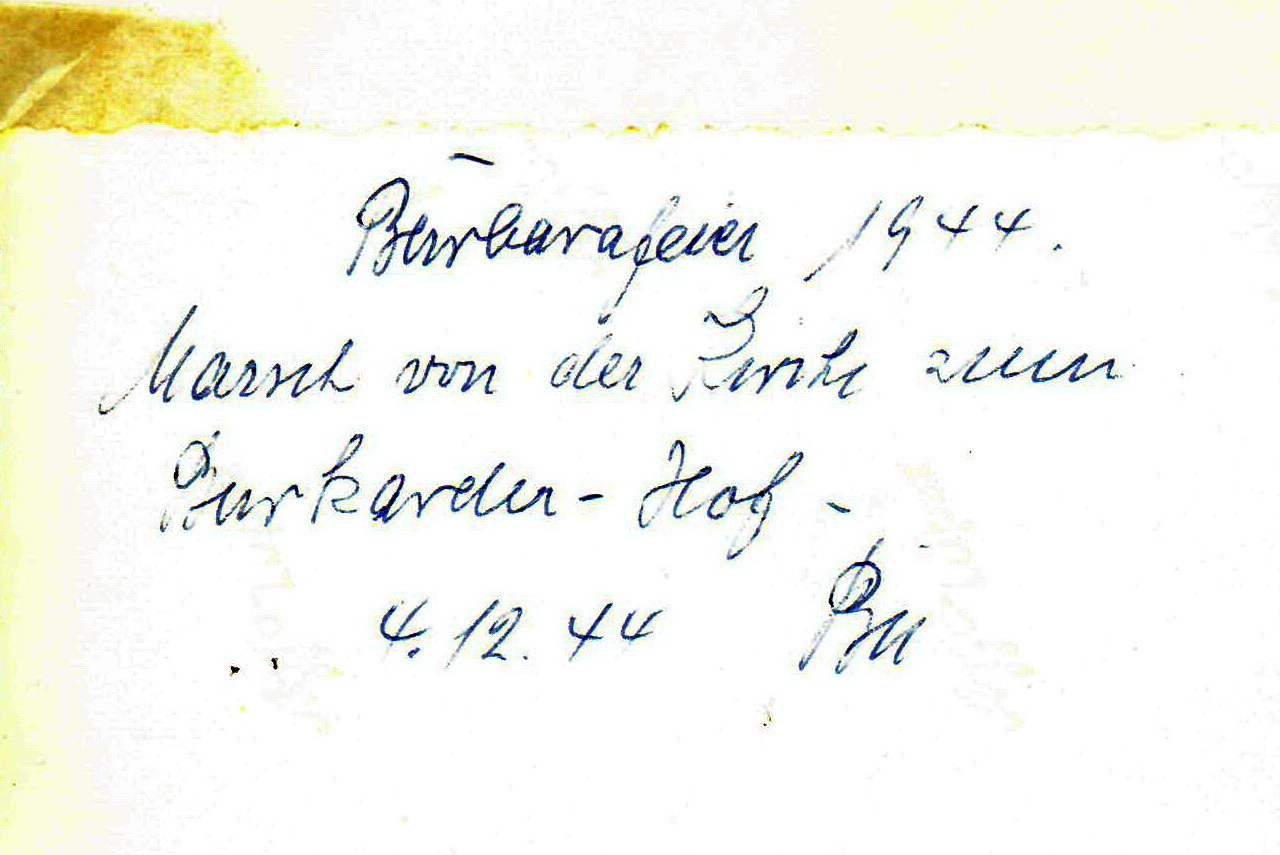 Barbarafeier 1944.
Marsch von der Kirche zum
Burkarder-Hof-
4.12.44 Bu